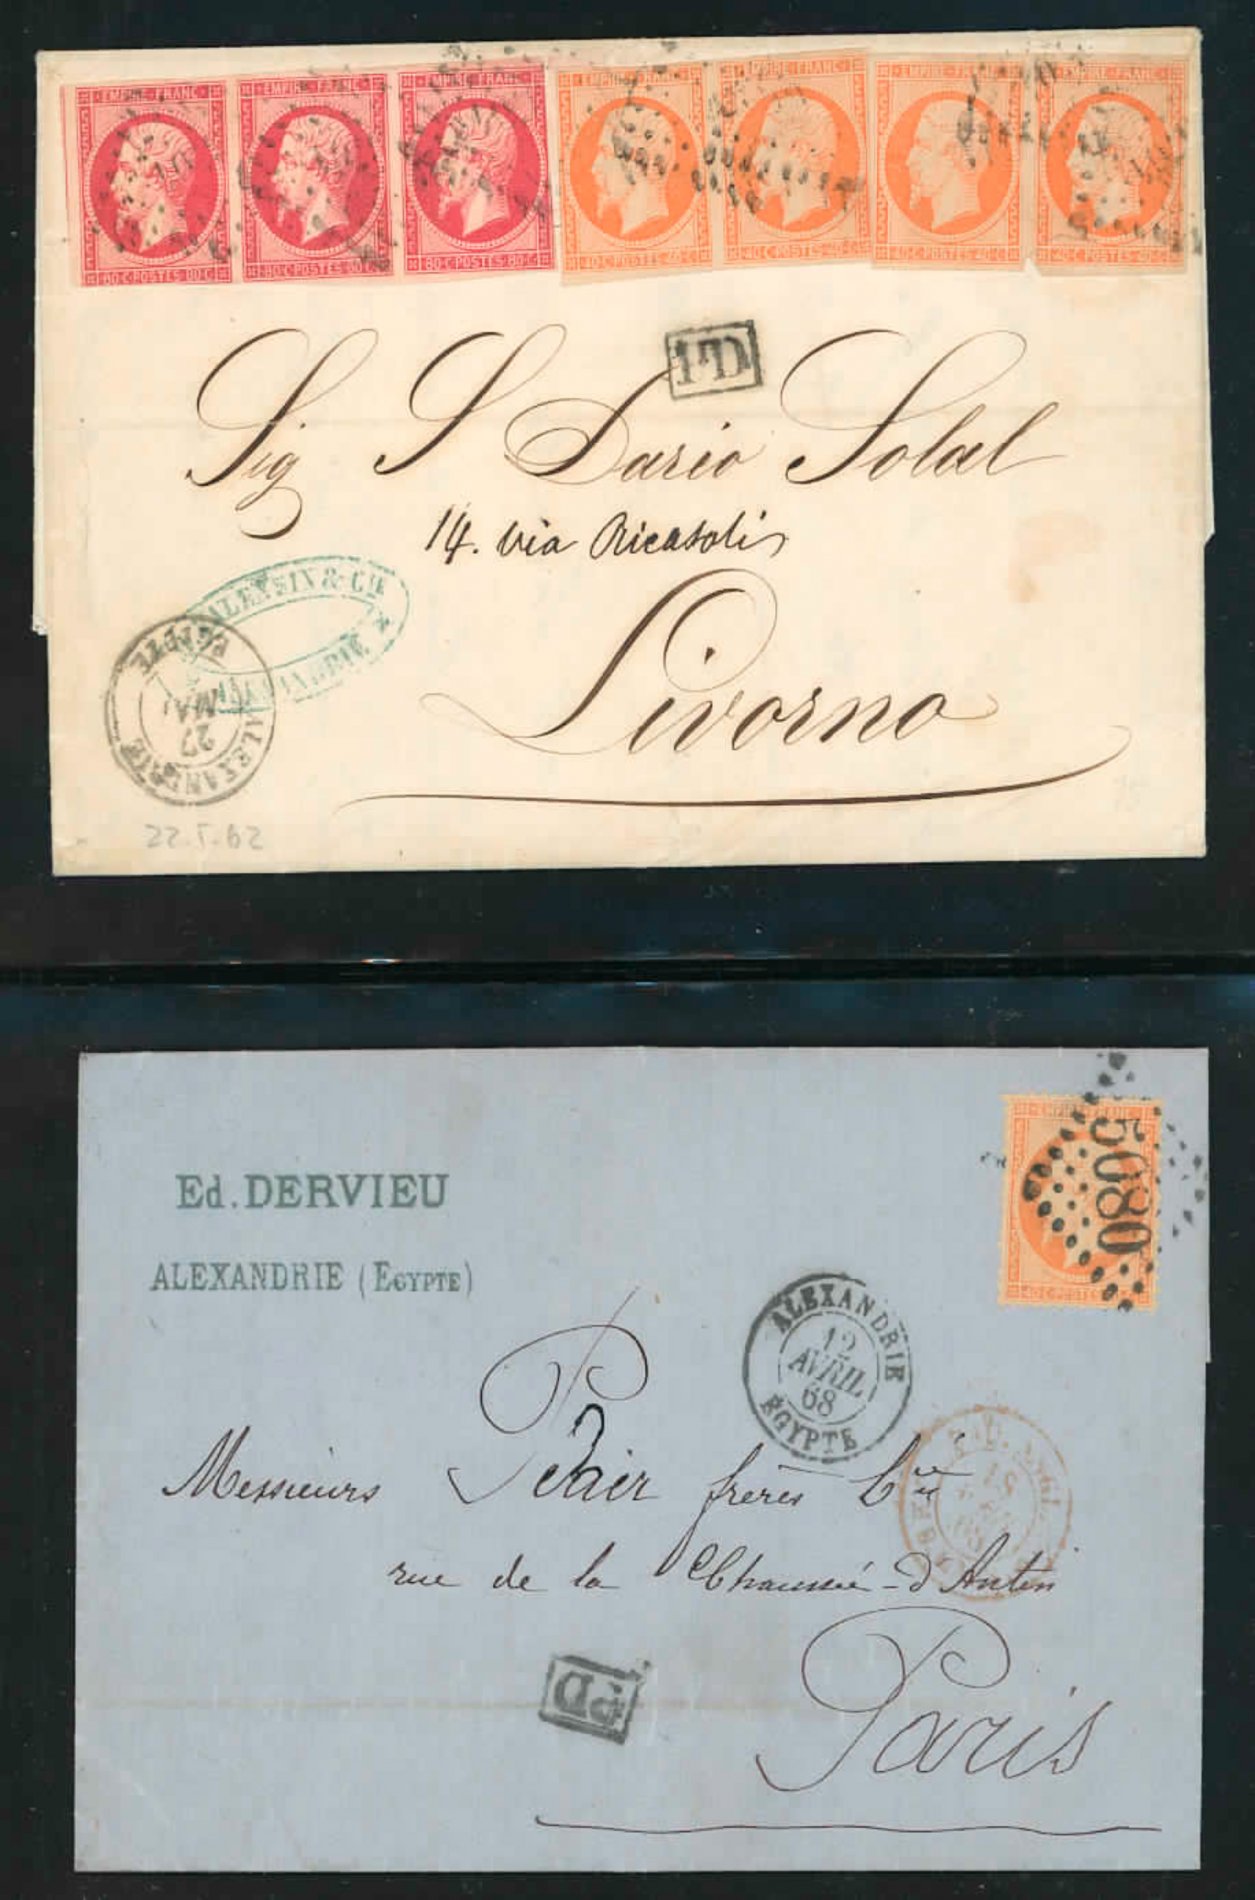 EMPIRE FRANC EMPIRE FRANC EMPIRE FRANC EMPIRE FRANC EMPIRE FRANC
80·C·POSTES·80·C· 80·C·POSTES·80·C· 80·C·POSTES·80·C· 40·C·POSTES·40·C· 40·C·POSTES·40·C· 40·C·POSTES·40·C· 40·C·POSTES·40·C·
PD
Sig S Dario Solal
14. via Ricasoli
Livorno
& CIE
ALEXANDRIE
27
MAI
EGYPTE
22.5.62
EMPIRE FRANC
5080
40·C·POSTES
Ed. DERVIEU
ALEXANDRIE (EGYPTE)
ALEXANDRIE
12
AVRIL
68
EGYPTE
Messieurs frères
rue de la Chaussée-d'Antin
PD
Paris